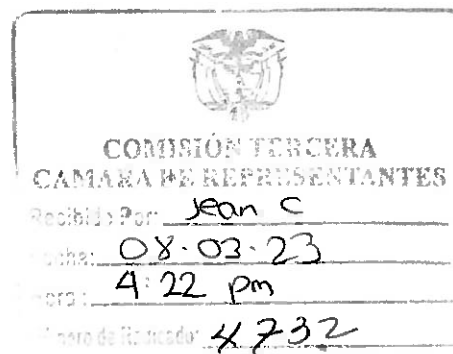 COMISIÓN TERCERA
CAMARA DE REPRESENTANTES
Recibido Por: Jean C
Fecha: 08-03-23
Hora: 4:22 pm
Número de Radicado: 4732